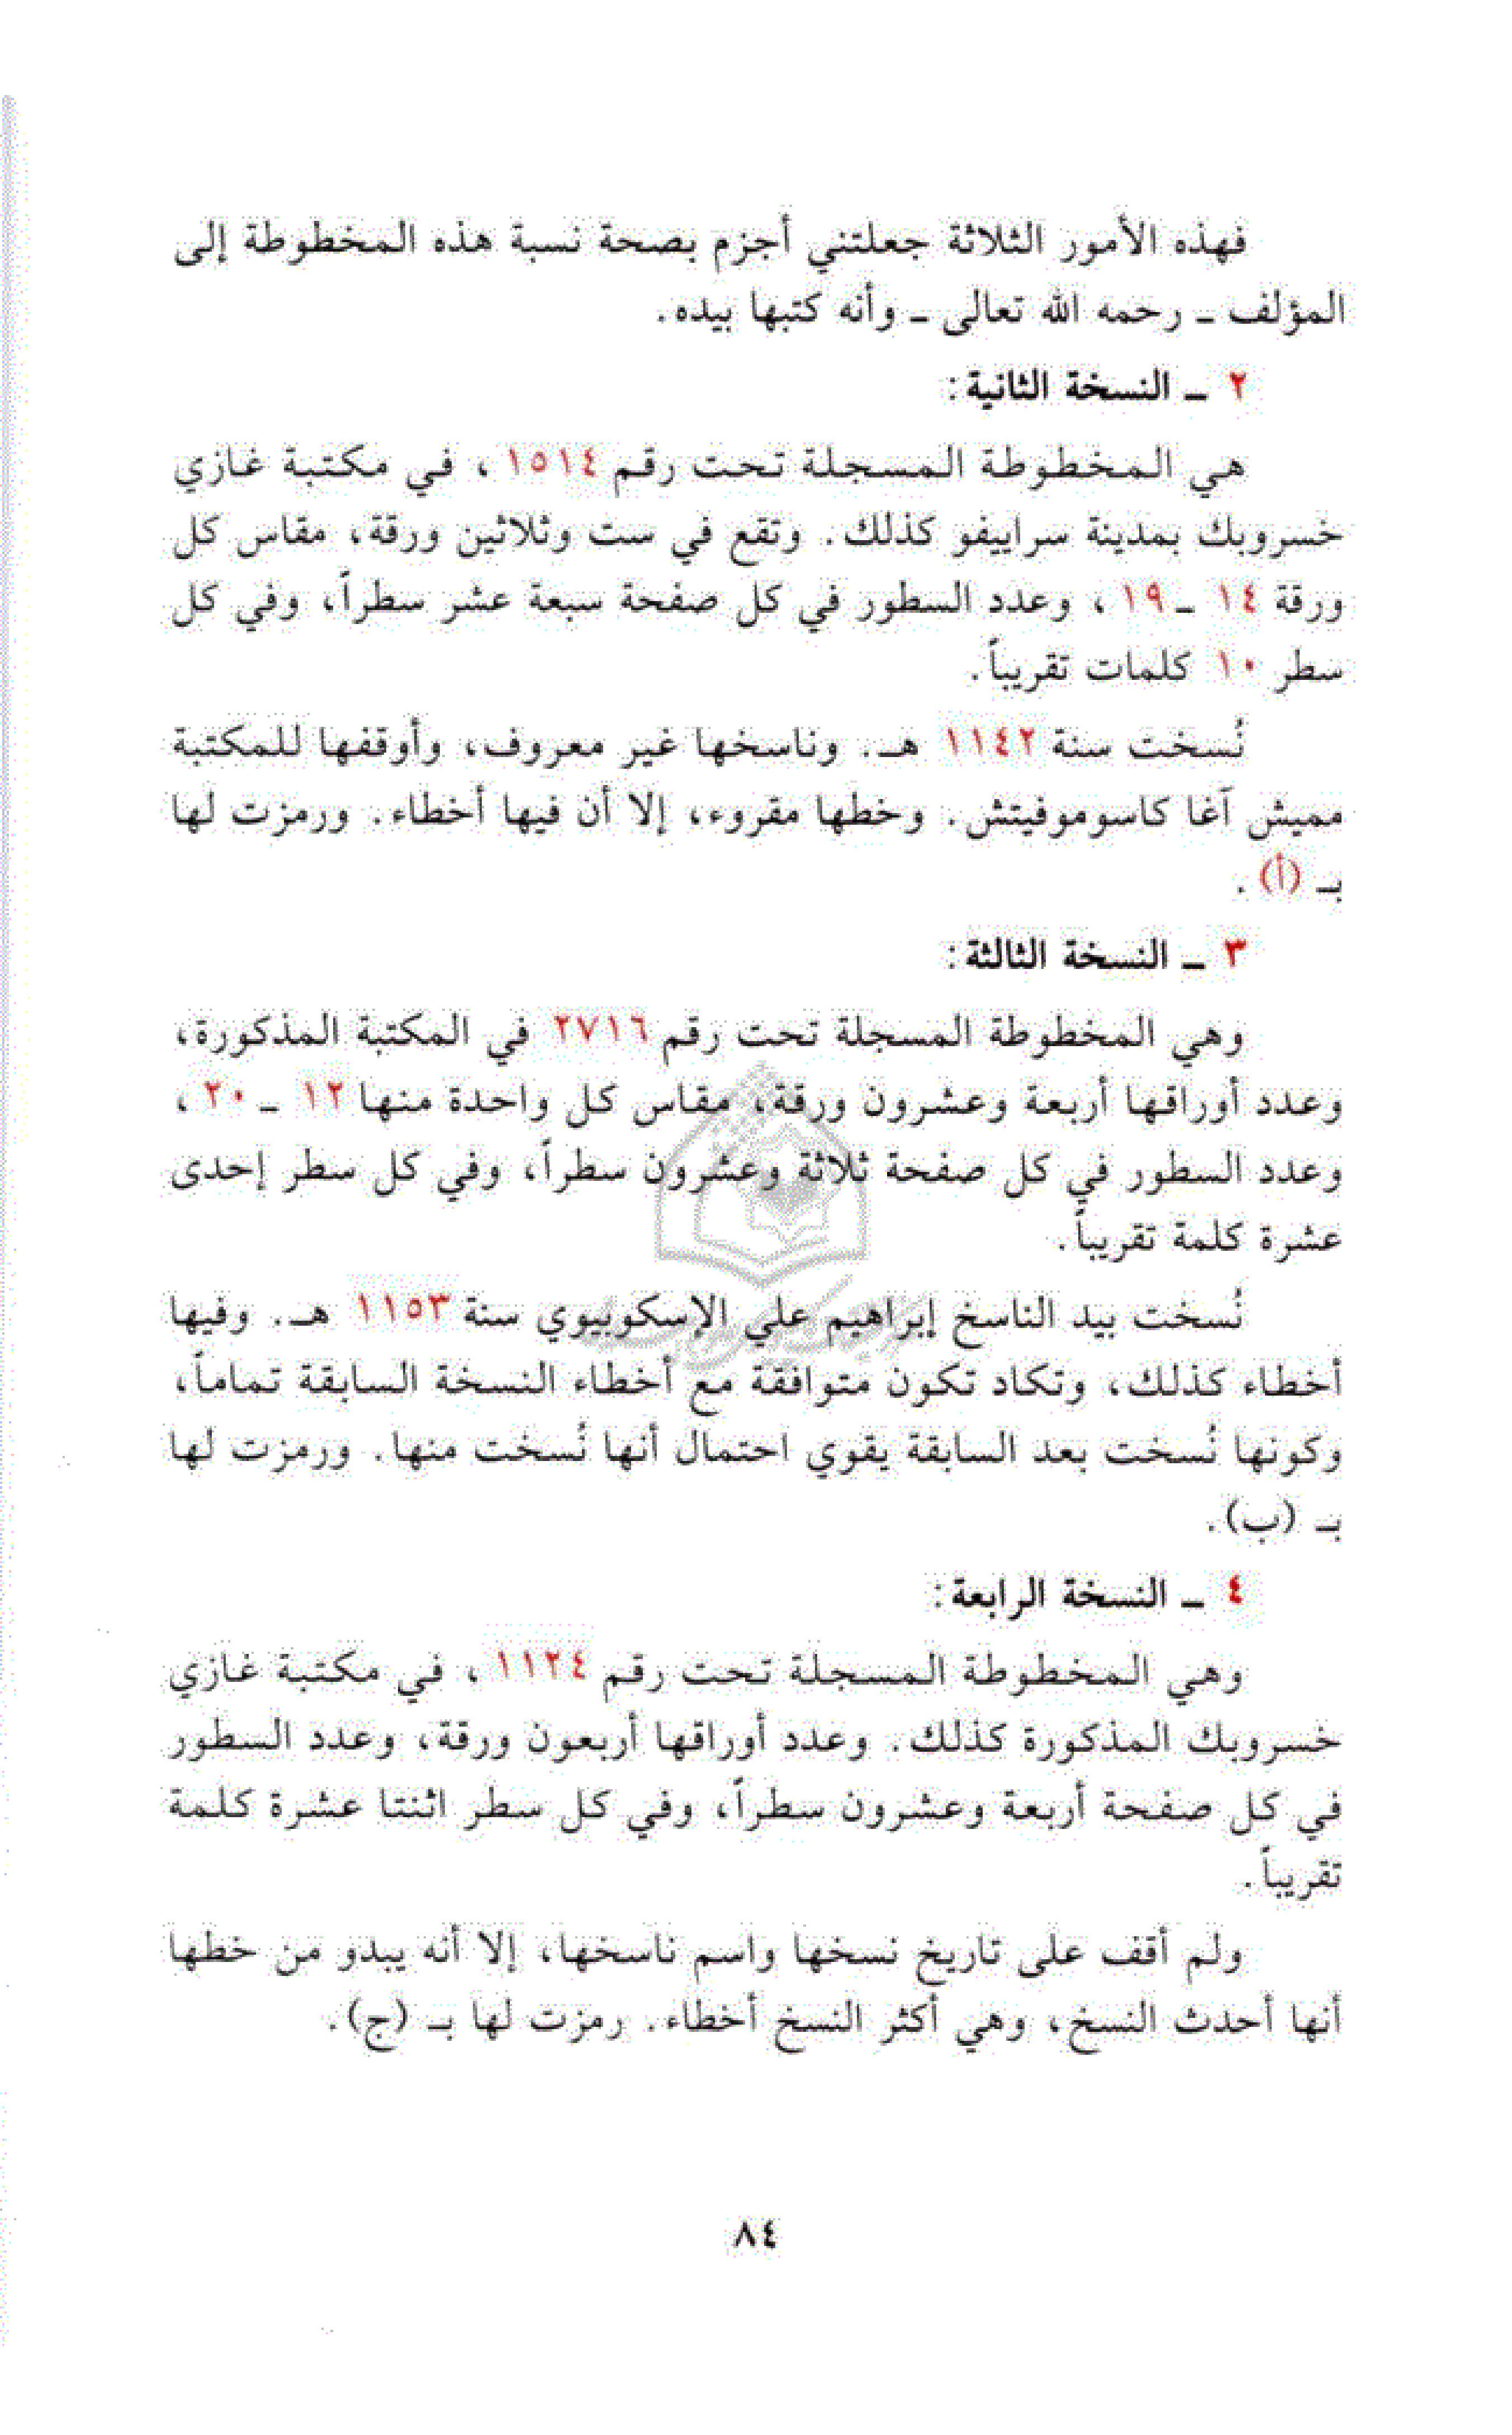 فهذه الأمور الثلاثة جعلتني أجزم بصحة نسبة هذه المخطوطة إلى
المؤلف ـ رحمه الله تعالى ـ وأنه كتبها بيده.
٢ ـ النسخة الثانية:
هي المخطوطة المسجلة تحت رقم ١٥١٤ ، في مكتبة غازي
خسروبك بمدينة سراييفو كذلك. وتقع في ست وثلاثين ورقة، مقاس كل
ورقة ١٤ ـ ١٩ ، وعدد السطور في كل صفحة سبعة عشر سطراً، وفي كل
سطر ١٠ كلمات تقريباً.
نُسخت سنة ١١٤٢ هـ. وناسخها غير معروف، وأوقفها للمكتبة
مميش آغا كاسوموفيتش. وخطها مقروء، إلا أن فيها أخطاء. ورمزت لها
بـ (أ) .
٣ ـ النسخة الثالثة:
وهي المخطوطة المسجلة تحت رقم ٢٧١٦ في المكتبة المذكورة،
وعدد أوراقها أربعة وعشرون ورقة، مقاس كل واحدة منها ١٢ ـ ٢٠ ،
وعدد السطور في كل صفحة ثلاثة وعشرون سطراً، وفي كل سطر إحدى
عشرة كلمة تقريباً.
نُسخت بيد الناسخ إبراهيم علي الإسكوبيوي سنة ١١٥٣ هـ. وفيها
أخطاء كذلك، وتكاد تكون متوافقة مع أخطاء النسخة السابقة تماماً،
وكونها نُسخت بعد السابقة يقوي احتمال أنها نُسخت منها. ورمزت لها
بـ (ب).
٤ ـ النسخة الرابعة:
وهي المخطوطة المسجلة تحت رقم ١١٢٤ ، في مكتبة غازي
خسروبك المذكورة كذلك. وعدد أوراقها أربعون ورقة، وعدد السطور
في كل صفحة أربعة وعشرون سطراً، وفي كل سطر اثنتا عشرة كلمة
تقريباً.
ولم أقف على تاريخ نسخها واسم ناسخها، إلا أنه يبدو من خطها
أنها أحدث النسخ، وهي أكثر النسخ أخطاء. رمزت لها بـ (ج).
٨٤